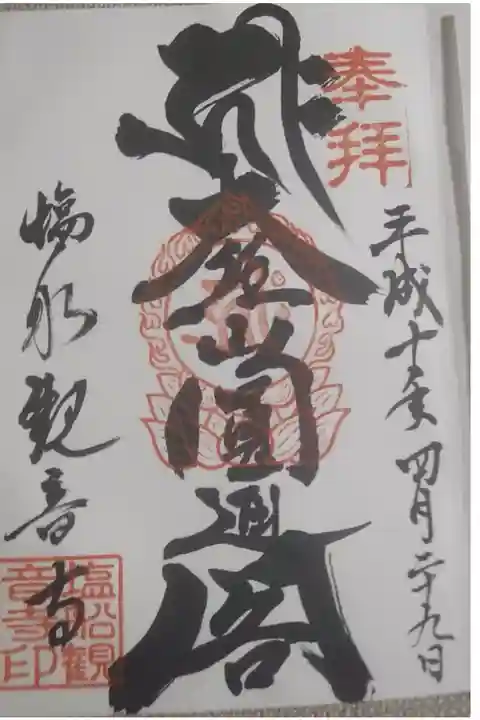 奉拝
平成十年四月二十九日
大悲山圓通閣
塩船觀音寺
塩船観
音寺印